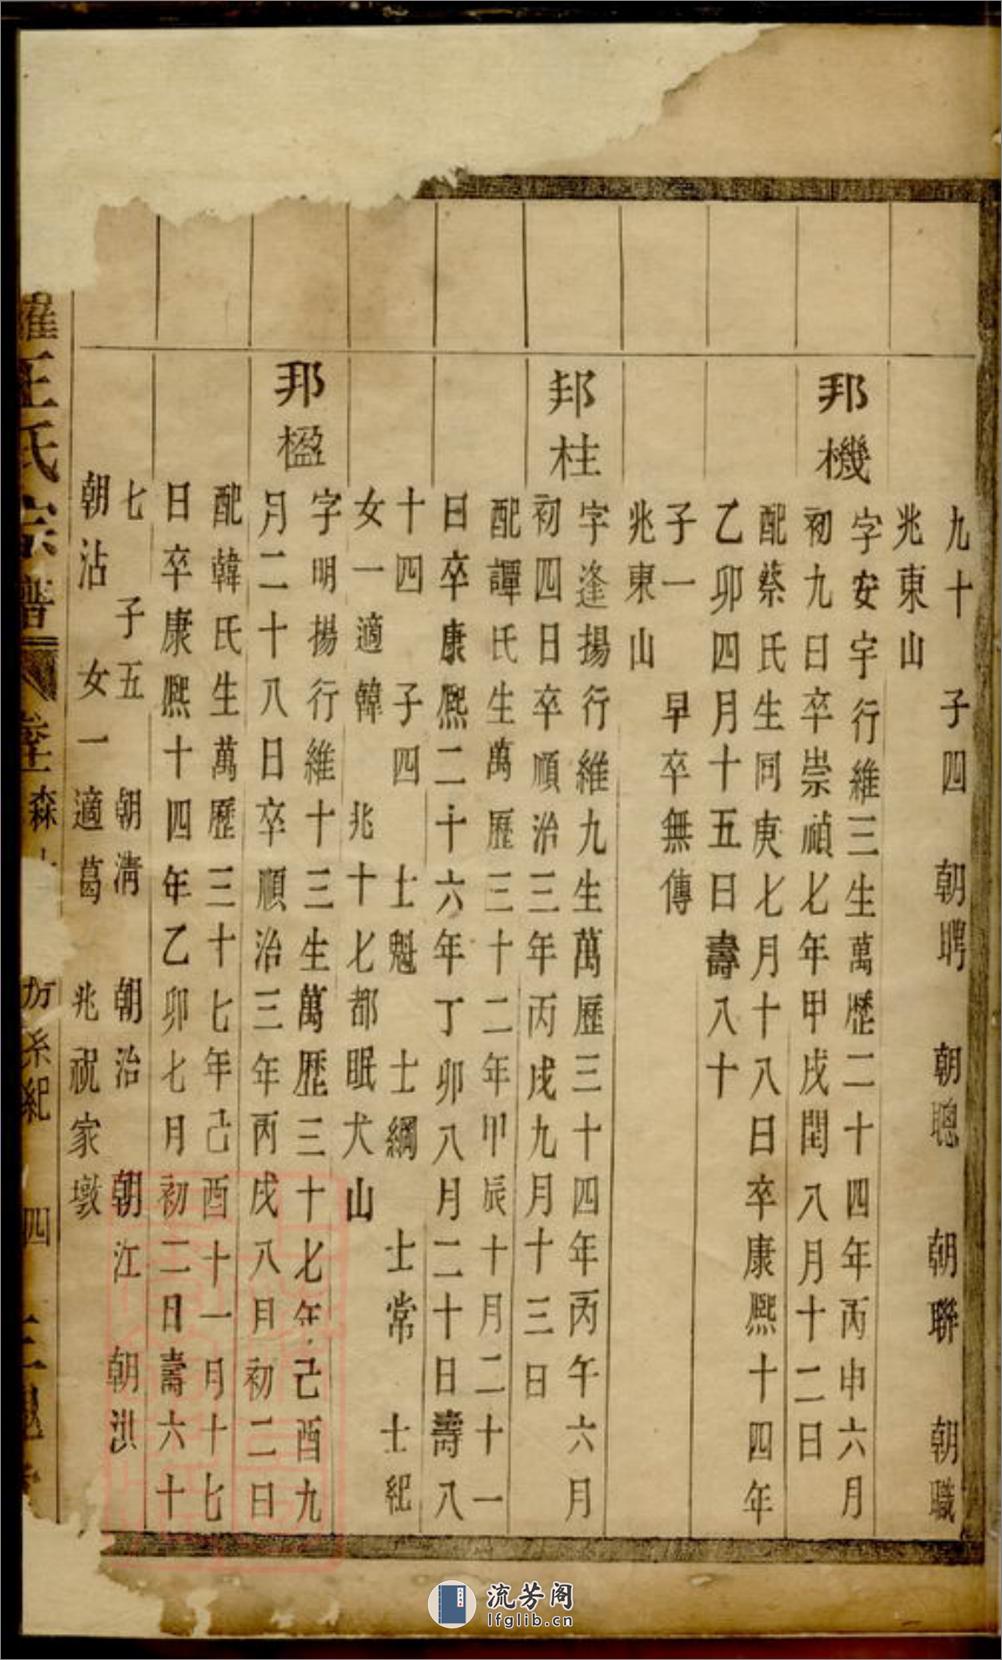 九十 子四 朝聘 朝聰 朝聯 朝職
兆東山
邦機 字安宇行維三生萬歷二十四年丙申六月
初九日卒崇禎七年甲戌閏八月十二日
配蔡氏生同庚七月十八日卒康熙十四年
乙卯四月十五日壽八十
子一 早卒無傳
兆東山
邦柱 字逢揚行維九生萬歷三十四年丙午六月
初四日卒順治三年丙戌九月十三日
配譚氏生萬歷三十二年甲辰十月二十一
日卒康熙二十六年丁卯八月二十日壽八
十四 子四 士魁 士綱 士常 士紀
女一適韓 兆十七都眠犬山
邦楹 字明揚行維十三生萬歷三十七年己酉九
月二十八日卒順治三年丙戌八月初二日
配韓氏生萬歷三十七年己酉十一月十七
日卒康熙十四年乙卯七月初二日壽六十
七 子五 朝清 朝治 朝江 朝洪
朝沾 女一適葛 兆祝家墩
羅王氏宗譜 森 系紀 四
流芳阁
lfglib.cn